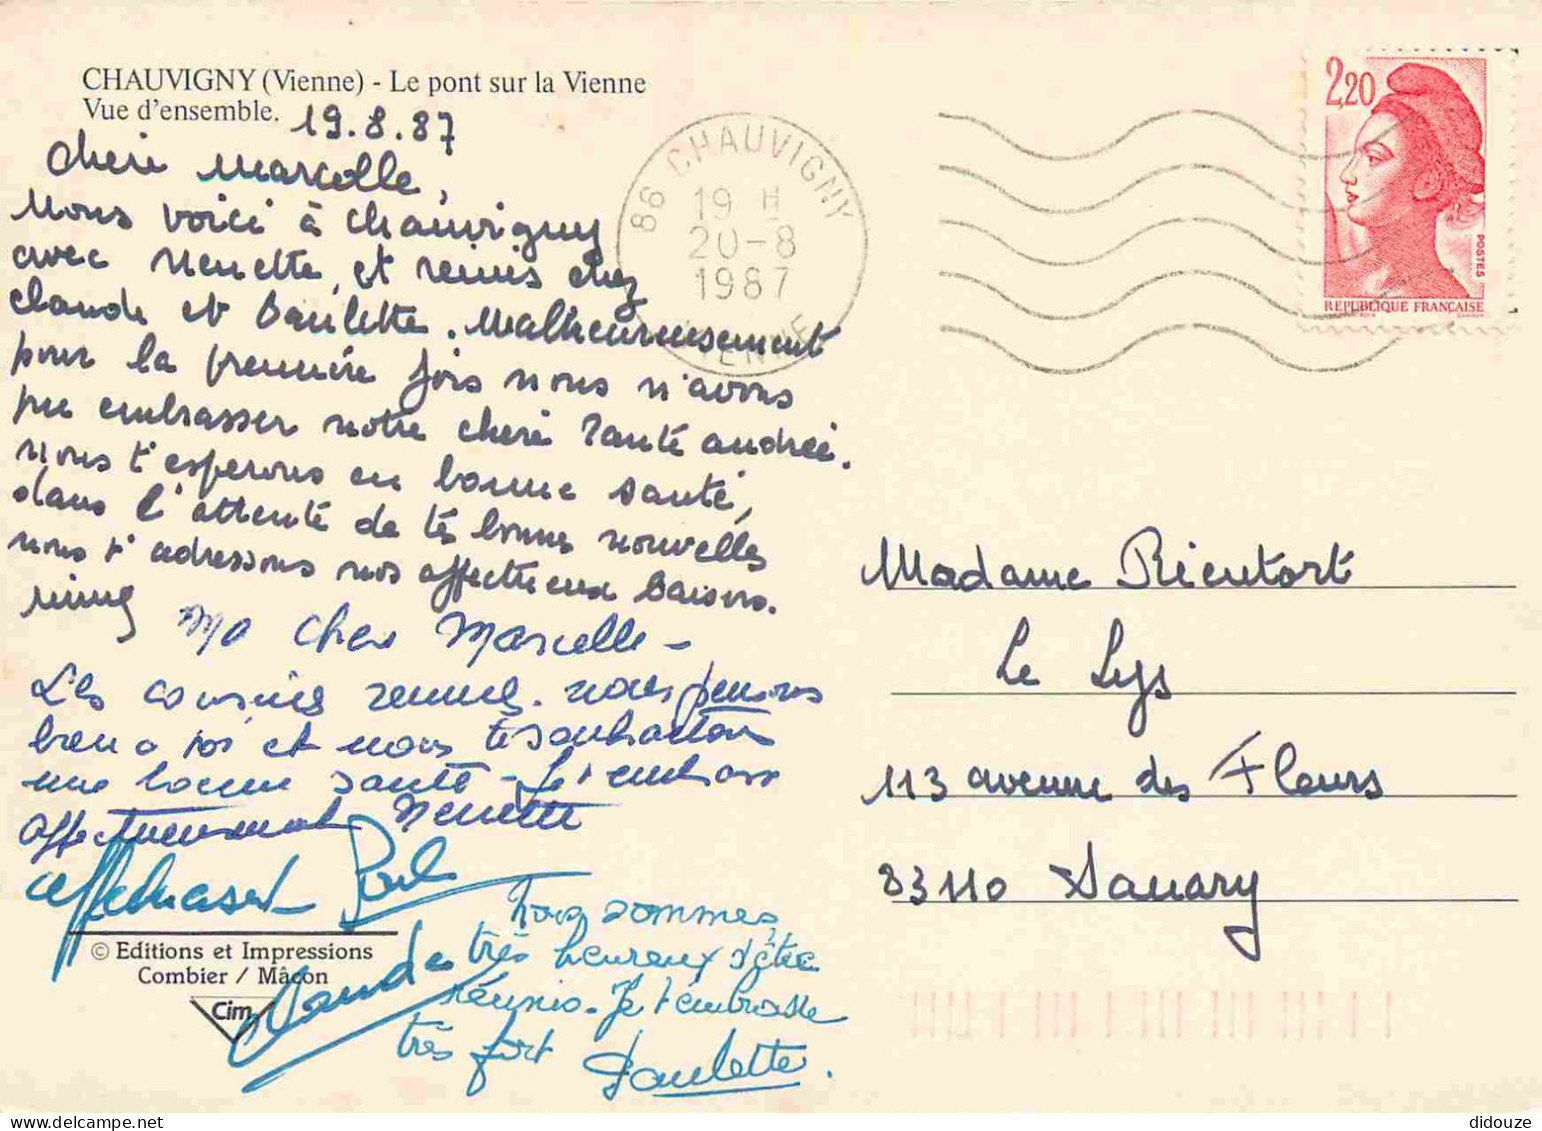 CHAUVIGNY (Vienne) - Le pont sur la Vienne
Vue d'ensemble.
19.8.87
chère Marcelle,
Nous voici à Chauvigny
avec Nenette, et réunis chez
Claude et Paulette. Malheureusement
pour la première fois nous n'avons
pu embrasser notre chère Tante andrée.
nous t'espérons en bonne santé,
dans l'attente de tes bonnes nouvelles
nous t'adressons nos affectueux baisers.
Ma chere Marcelle -
Les cousines reunies. nous pensons
bien a toi et nous te souhaitons
une bonne santé - Je t'embrasse
affectueusement Nenette
affectueusement Paul
Claude
Nous sommes
très heureux d'être
réunis. Je t'embrasse
très fort Paulette.
© Editions et Impressions
Combier / Mâcon
Cim
86 CHAUVIGNY
19 H
20-8
1987
VIENNE
2,20
POSTES
REPUBLIQUE FRANCAISE
Madame Rieutort
Le Lys
113 avenue des Fleurs
83110 Sanary
didouze